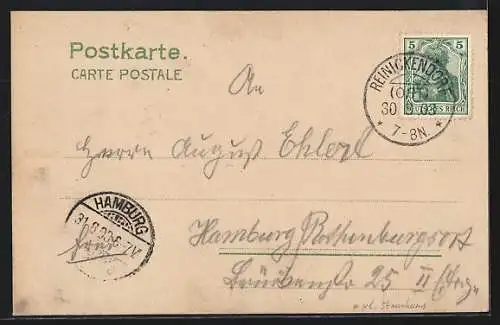 Postkarte.
CARTE POSTALE
5 5
REINICKENDORF
(OST)
30 03
* 7-8N. *
DEUTSCHES REICH
An
Herrn August Ehlert
HAMBURG
31.8.03.6-7V
Hamburg Rothenburgsort
25 II Etg.